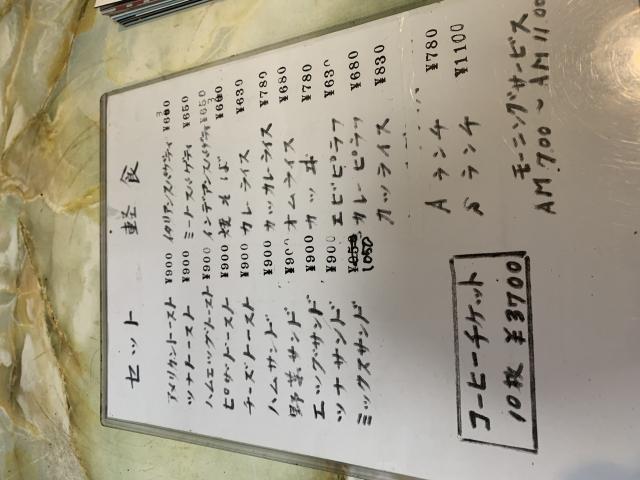 セット 軽食
アメリカントースト ¥900 イタリアンスパゲティ
ツナトースト ¥900 ミートスパゲティ ¥650
ハムエッグトースト ¥900 インデアンスパゲティ ¥650
ピザトースト ¥900 焼そば
チーズトースト ¥900 カレーライス ¥630
ハムサンド ¥900 カツカレーライス ¥780
野菜サンド ¥900 オムライス ¥680
エッグサンド ¥900 カツ丼 ¥780
ツナサンド ¥900 エビピラフ ¥630
ミックスサンド 1050 カレーピラフ ¥680
カツライス ¥830
Aランチ ¥780
Bランチ ¥1100
コーヒーチケット
10枚 ¥3700
モーニングサービス
AM.7.00～AM11.00